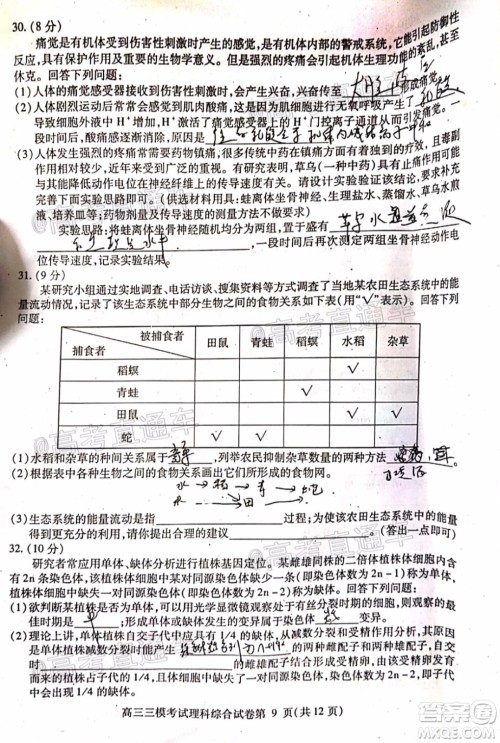 30. (8分)
痛觉是有机体受到伤害性刺激时产生的感觉,是有机体内部的警戒系统,它能引起防御性
反应,具有保护作用及重要的生物学意义。但是强烈的疼痛会引起机体生理功能的紊乱,甚至
休克。回答下列问题:
(1)人体的痛觉感受器接收到伤害性刺激时,会产生兴奋,兴奋传到 大脑皮层 形成痛觉。
(2)人体剧烈运动后感到肌肉酸痛,这是因为肌细胞进行无氧呼吸产生了
导致细胞外液中H⁺增加,H⁺激活了痛觉感受器上的H⁺门控离子通道从而引起痛觉。一
段时间后,酸痛感逐渐消除,原因是
(3)人体发生强烈的疼痛常需要药物镇痛,很多传统中药在镇痛方面有独到的疗效,且毒副
作用较小,近年来受到广泛的重视。有研究表明,草乌(一种中药)具有止痛作用可能
与其能降低动作电位在神经纤维上的传导速度有关。请设计实验验证该结论,要求
完善下面实验思路即可(供选用材料及用具:蛙离体坐骨神经、生理盐水、蒸馏水、草乌水煎
剂等;药物剂量及传导速度的测量方法不作要求)。
实验思路:将生理状况相同的蛙离体坐骨神经随机均分为两组,分别置于
,一段时间后再次测定两组坐骨神经动作电
位传导速度,记录实验结果。
31. (9分)
某研究小组通过实地调查、电话访谈、搜集资料等方式调查了当地某农田生态系统中的能
量流动情况,记录了该生态系统中部分生物之间的食物关系如下表(用“√”表示)。回答下列
问题:
被捕食者 田鼠 青蛙 稻螟 水稻 杂草
捕食者
稻螟 √
青蛙 √
田鼠 √ √
蛇 √ √
(1)水稻和杂草的种间关系属于 竞争 ,列举农民抑制杂草数量的两种方法
(2)根据表中各种生物之间的食物关系画出它们所形成的食物网。
(3)生态系统的能量流动是指 过程;为使该农田生态系统的能
量得到充分利用,请你提出合理的建议 。(答出一点即可)
32. (10分)
研究者常应用单体、缺体分析进行植株基因定位。某雌雄同株的二倍体植株体细胞中含
有2n条染色体,该植株体细胞中某对同源染色体缺失一条(即染色体数为2n-1)称为单体,
体细胞中缺失某对同源染色体的植株(即染色体数为2n-2)称为缺体。回答下列问题:
(1)欲判断某植株是否为单体可用光学显微镜观察处于有丝分裂时期的细胞,则观察的最
佳时期是 ;形成单体或缺体的变异属于染色体 变异。
(2)理论上讲,单体植株自交子代中应具有1/4的缺体,从减数分裂和受精作用分析,其原因
是单体植株减数分裂时能产生
的雌雄配子,且该类型的雌雄配子结合形成受精卵的概率为1/4,由受精卵发育来
的植株占子代的1/4,且其他受精卵发育来的植株均不是缺体,因此单体自交子代中会
出现1/4的缺体。
高三三模考试理科综合试卷第 9 页(共12页)